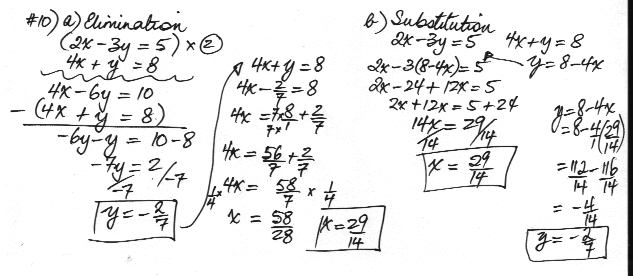 #10) a) Elimination
(2x - 3y = 5) × ②
4x + y = 8
4x - 6y = 10
- (4x + y = 8)
-6y - y = 10 - 8
-7y = 2 / -7
/-7
y = - 2/7
4x + y = 8
4x - 2/7 = 8
4x = 7×8/7×1 + 2/7
4x = 56/7 + 2/7
1/4 × 4x = 58/7 × 1/4
x = 58/28
x = 29/14
b) Substitution
2x - 3y = 5 4x + y = 8
2x - 3(8 - 4x) = 5 y = 8 - 4x
2x - 24 + 12x = 5
2x + 12x = 5 + 24
14x = 29/14
/14
x = 29/14
y = 8 - 4x
= 8 - 4/1 (29/14)
= 112/14 - 116/14
= - 4/14
y = - 2/7